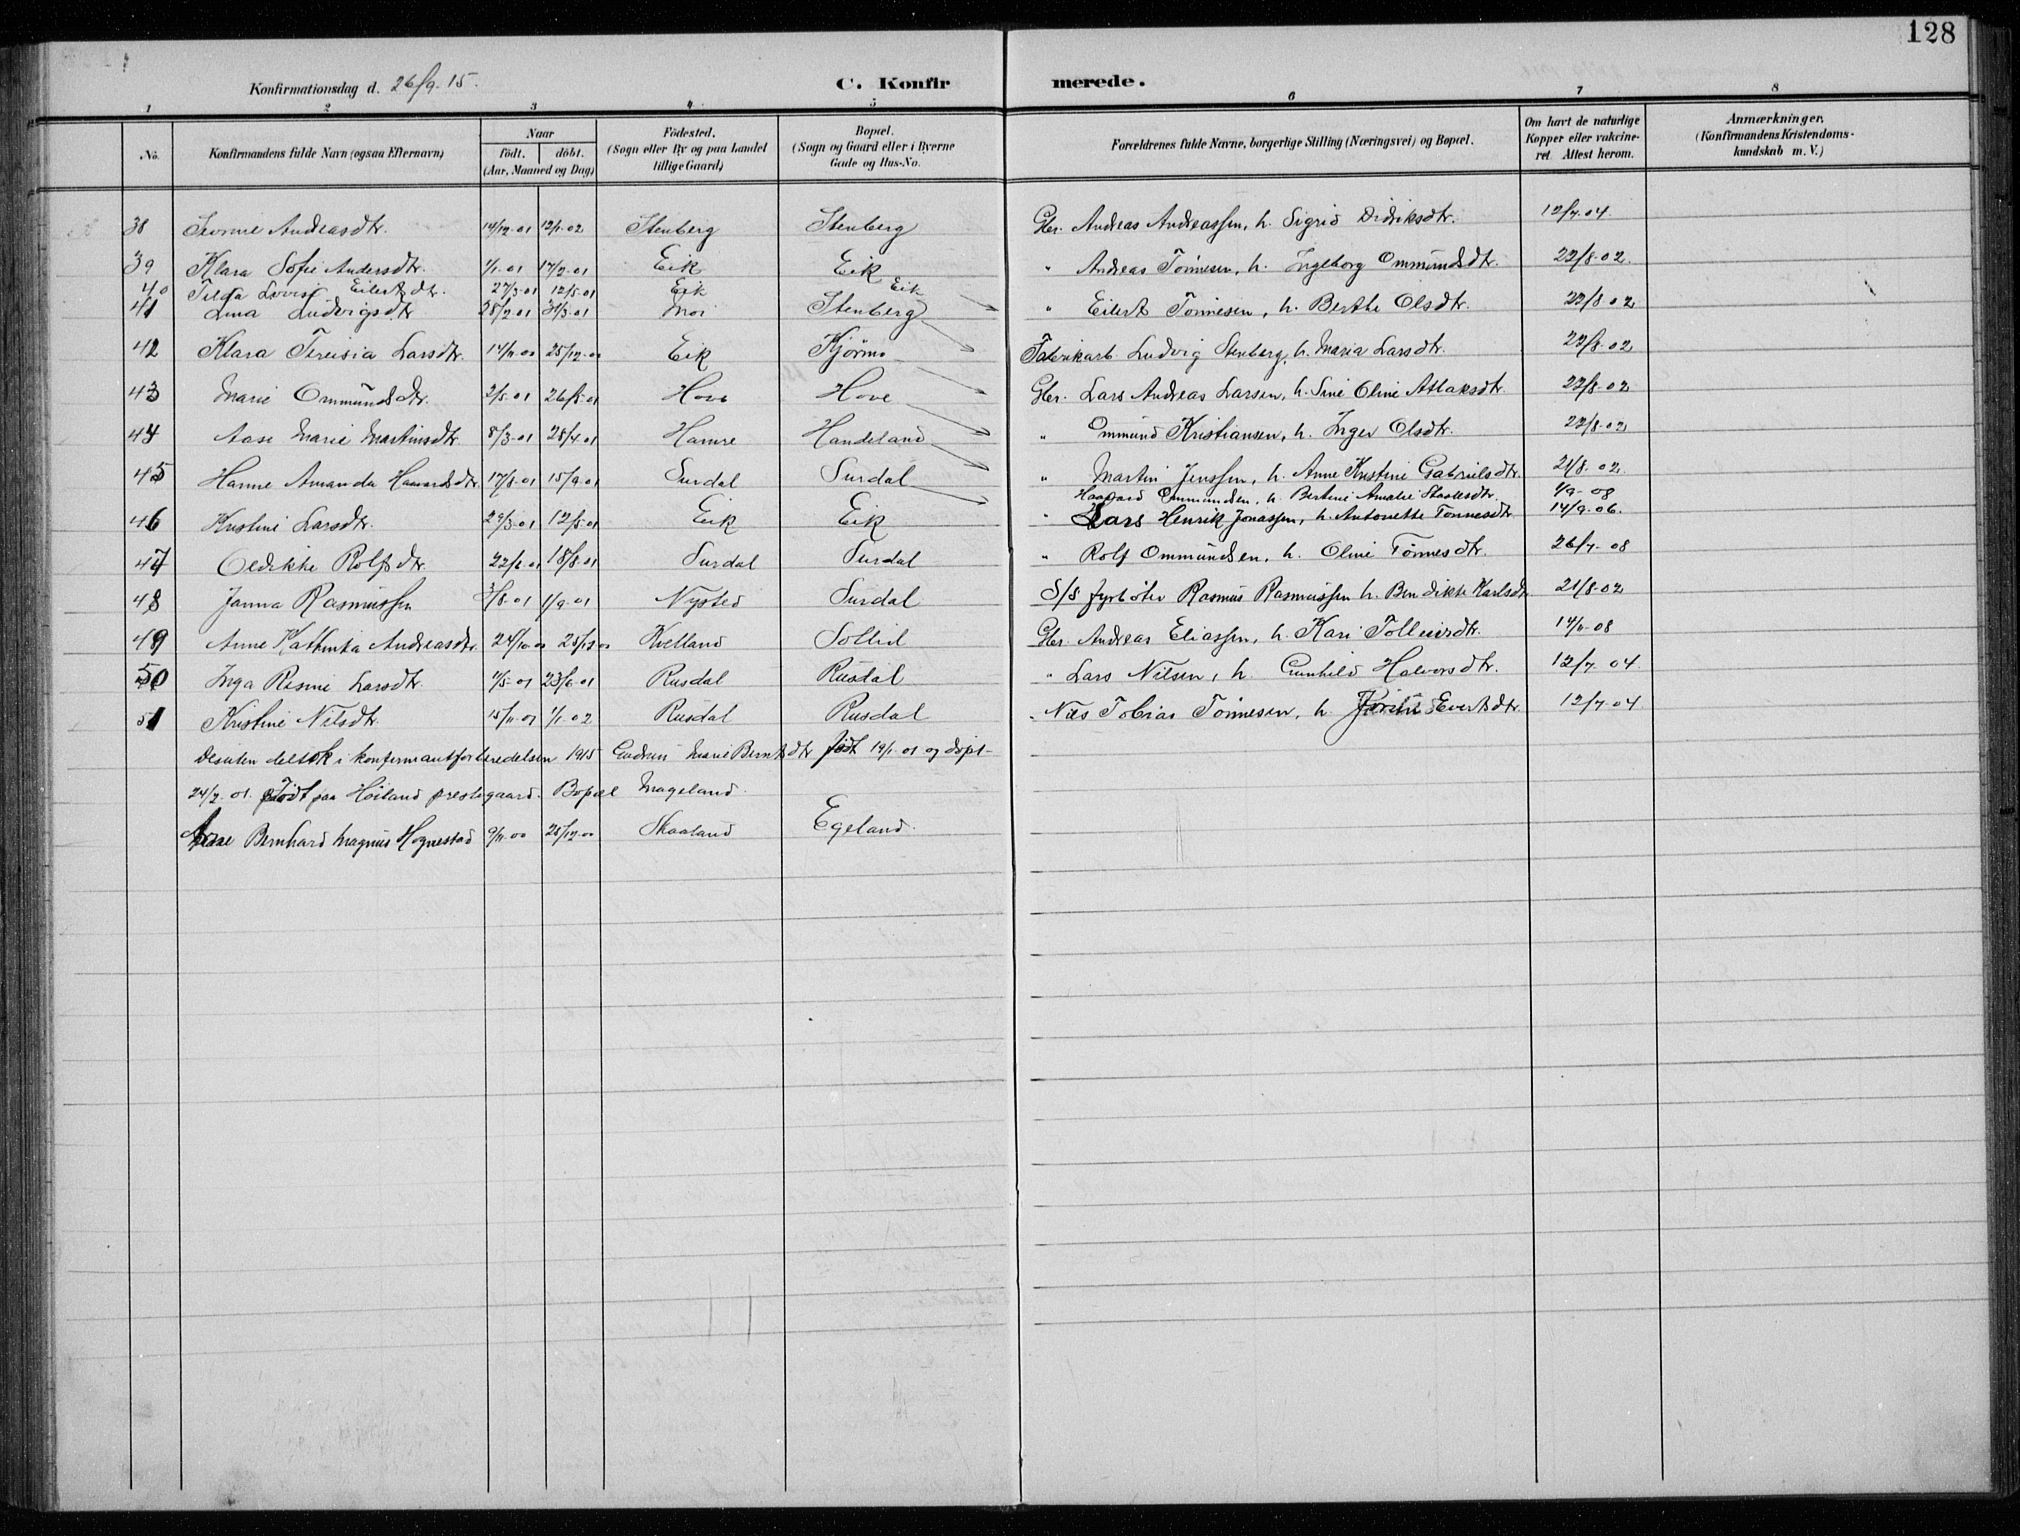 128
Konfirmationsdag d. 26/9. 15.
C. Konfirmerede.
1 2 3 4 5 6 7 8
No.
Konfirmandens fulde Navn (ogsaa Efternavn)
Naar
födt. döbt.
(Aar, Maaned og Dag)
Födested.
(Sogn eller By og paa Landet
tillige Gaard)
Bopæl.
(Sogn og Gaard eller i Byerne
Gade og Hus-No.
Forældrenes fulde Navne, borgerlige Stilling (Næringsvei) og Bopæl.
Om havt de naturlige
Kopper eller vakcine-
ret. Attest herom.
Anmærkninger.
(Konfirmandens Kristendoms-
kundskab m. V.)
38 Andreasdtr. 14/12-01 12/1-02 Stenberg Stenberg Gbr. Andreas Andreassen, h. Sigrid Didriksdtr. 12/7.04.
39 Klara Sofie Andersdtr. 1/1.01 17/2.01 Eik Eik " Andreas Tönnesen, h. Ingeborg Ommundsdtr. 22/8-02.
40 Tilda Lovise Eilertsdtr. 27/3-01 12/5-01 Eik Eik
41 Lina Ludvigsdtr 28/2.01 31/3.01 Moi Stenberg " Eilert Tönnesen, h. Berthe Olsdtr. 22/8.02
42 Klara Teresia Larsdtr. 14/11.00 25/12.00 Eik Kjörmo Fabrikarb. Ludvig Stenberg, h. Maria Larsdtr. 22/8-02
43 Marie Ommundsdtr. 2/5.01 26/5.01 Hove Hove Gbr. Lars Andreas Larsen, h. Sine Oline Atlaksdtr. 22/8-02
44 Aase Marie Martinsdtr. 8/3-01 28/4.01 Hamre Handeland " Ommund Kristiansen, h. Inger Olsdtr. 22/8-02
45 Hanne Amanda Haavardsdtr. 17/8-01 15/9.01 Surdal Surdal " Martin Jenssen, h. Anne Kristine Gabrielsdtr. 21/8.02.
Haavard Ommundsen, h. Bertine Amalie 1/9-08
46 Kristine Larsdtr. 29/3.01 12/5.01 Eik Eik " Lars Henrik Jonassen, h. Antonette Tönnesdtr. 14/9.06.
47 Oldikke Rolfsdtr. 22/6.01 18/8.01 Surdal Surdal " Rolf Ommundsen, h. Oline Tönnesdtr. 26/7-08
48 Janna Rasmussen 3/8-01 1/9-01 Nysted Surdal S/S fyrböter Rasmus Rasmussen h. Bendikte Karlsdtr 21/8-02
49 Anne Kathinka Andreasdtr. 24/10.00 25/12.00 Kvelland Sollid Gbr. Andreas Eliassen, h. Kari Tolleivsdtr. 14/6-08
50 Inga Rasmine Larsdtr. 11/5-01 23/6.01 Rusdal Rusdal " Lars Nilsen, h. Gunhild Halvorsdtr. 12/7.04.
51 Kristine Nilsdtr. 15/11.01 1/1.02 Rusdal Rusdal " Nils Tobias Tönnesen, h. Evertsdtr. 12/7.04
Desuten deltok i konfirmantforberedelsen 1915 Gudrun Marie Berntsdtr. födt 19/1-01 og döpt
24/2.01. Födt paa Höiland prestegaard. Bopæl Mageland.
Arne Bernhard Magnus Hognestad 9/11.00 25/12.00 Skaaland Egeland.